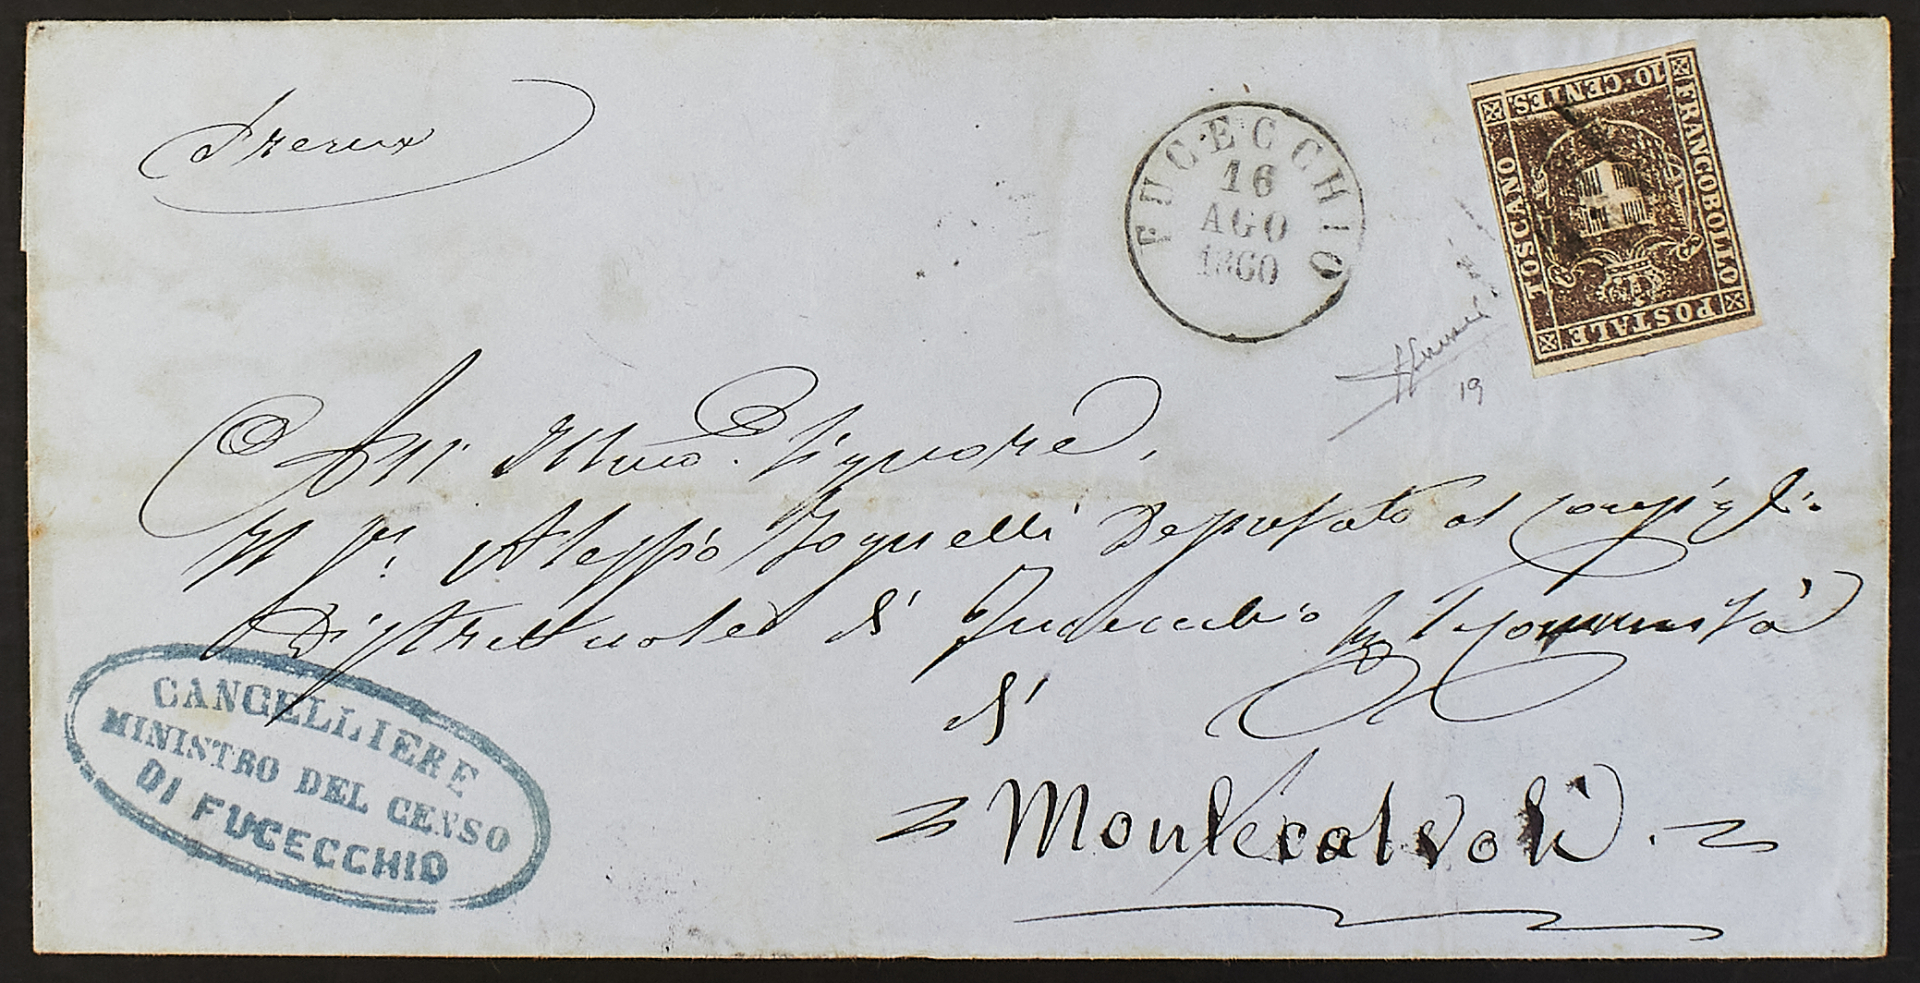 FUCECCHIO
16
AGO
1860
10·CENTES.
FRANCOBOLLO
POSTALE
TOSCANO
19
All' Illmo. Signore,
Alessio Deputato al
Distrettuale di Fucecchio la Comunità
di
Montecalvoli.
CANCELLIERE
MINISTRO DEL CENSO
DI FUCECCHIO